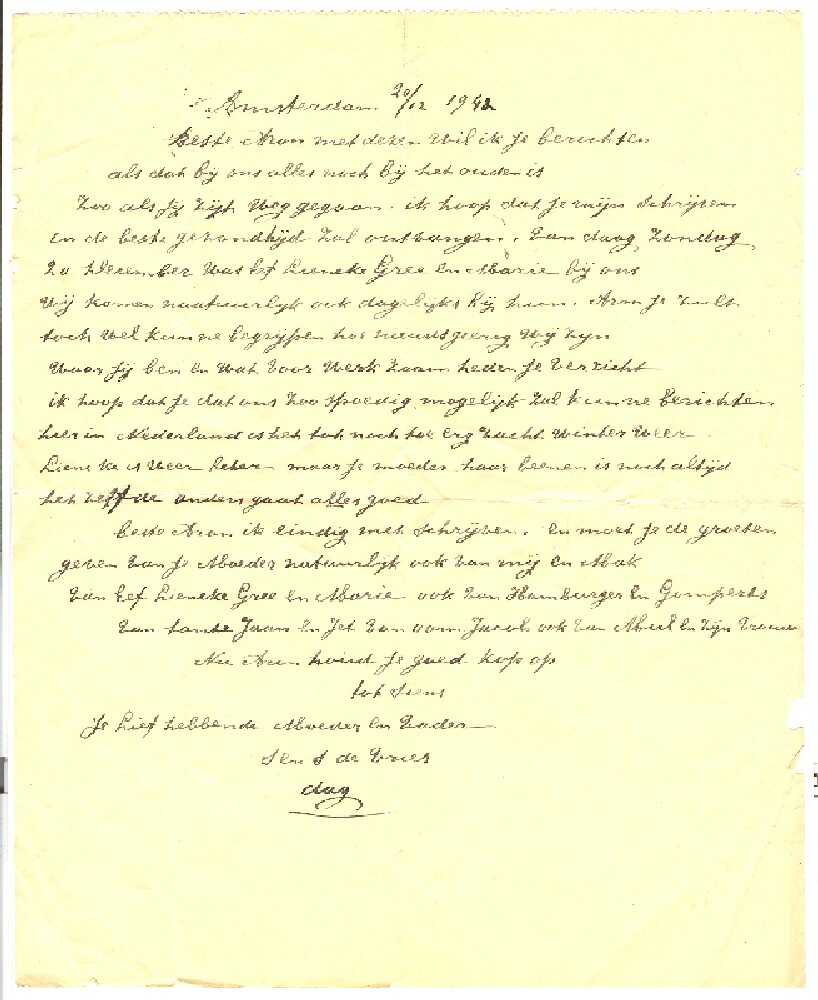 Amsterdam 20/12 1942
Beste Aron met dezen wil ik je berichten
als dat bij ons alles noch bij het ouden is
Zoo als jij zijt weg gegaan. ik hoop dat je mijn schrijven
in de beste gezondhijd zal ontvangen. Van daag Zondag
20 December was Lef Lieneke Gree en Marie bij ons
wij komen natuurlijk ook dagelijks bij hun. Aron je zult
toch wel kunne begrijpen hoe nieuwsgierig wij zijn
waar jij ben en wat voor werk zaam heden je verricht
ik hoop dat je dat ons zoo spoedig mogelijk zal kunne berichten
hier in Nederland is het tot noch toe erg zacht winter weer
Lieneke is weer beter maar je moeder haar beenen is noch altijd
het zelfde anders gaat alles goed
beste Aron ik eindig met schrijven. en moet je de groeten
geven van je Moeder natuurlijk ook van mij en Mak
van Lef Lieneke Gree en Marie ook van Hamburger en Gomperts
van tante Jaan en Jet van oom Jacob ook van en zijn vrouw
Nu Aron houd je goed kop op
tot siens
Je Lief hebbende Moeder en Vader
S en S de Vries
dag